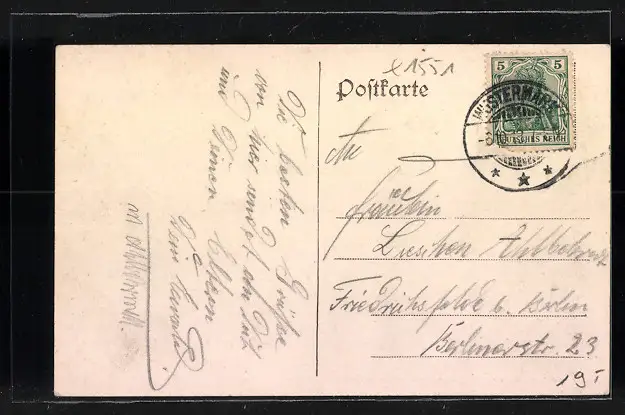 x1551
Postkarte
5 5
DEUTSCHES REICH
WUSTERMARK
An
Fräulein
Lieschen
Friedrichsfelde b. Berlin
Berlinerstr. 23
19,-
Die besten Grüße
von hier sendet an Dich
und Deinen Eltern
Dein